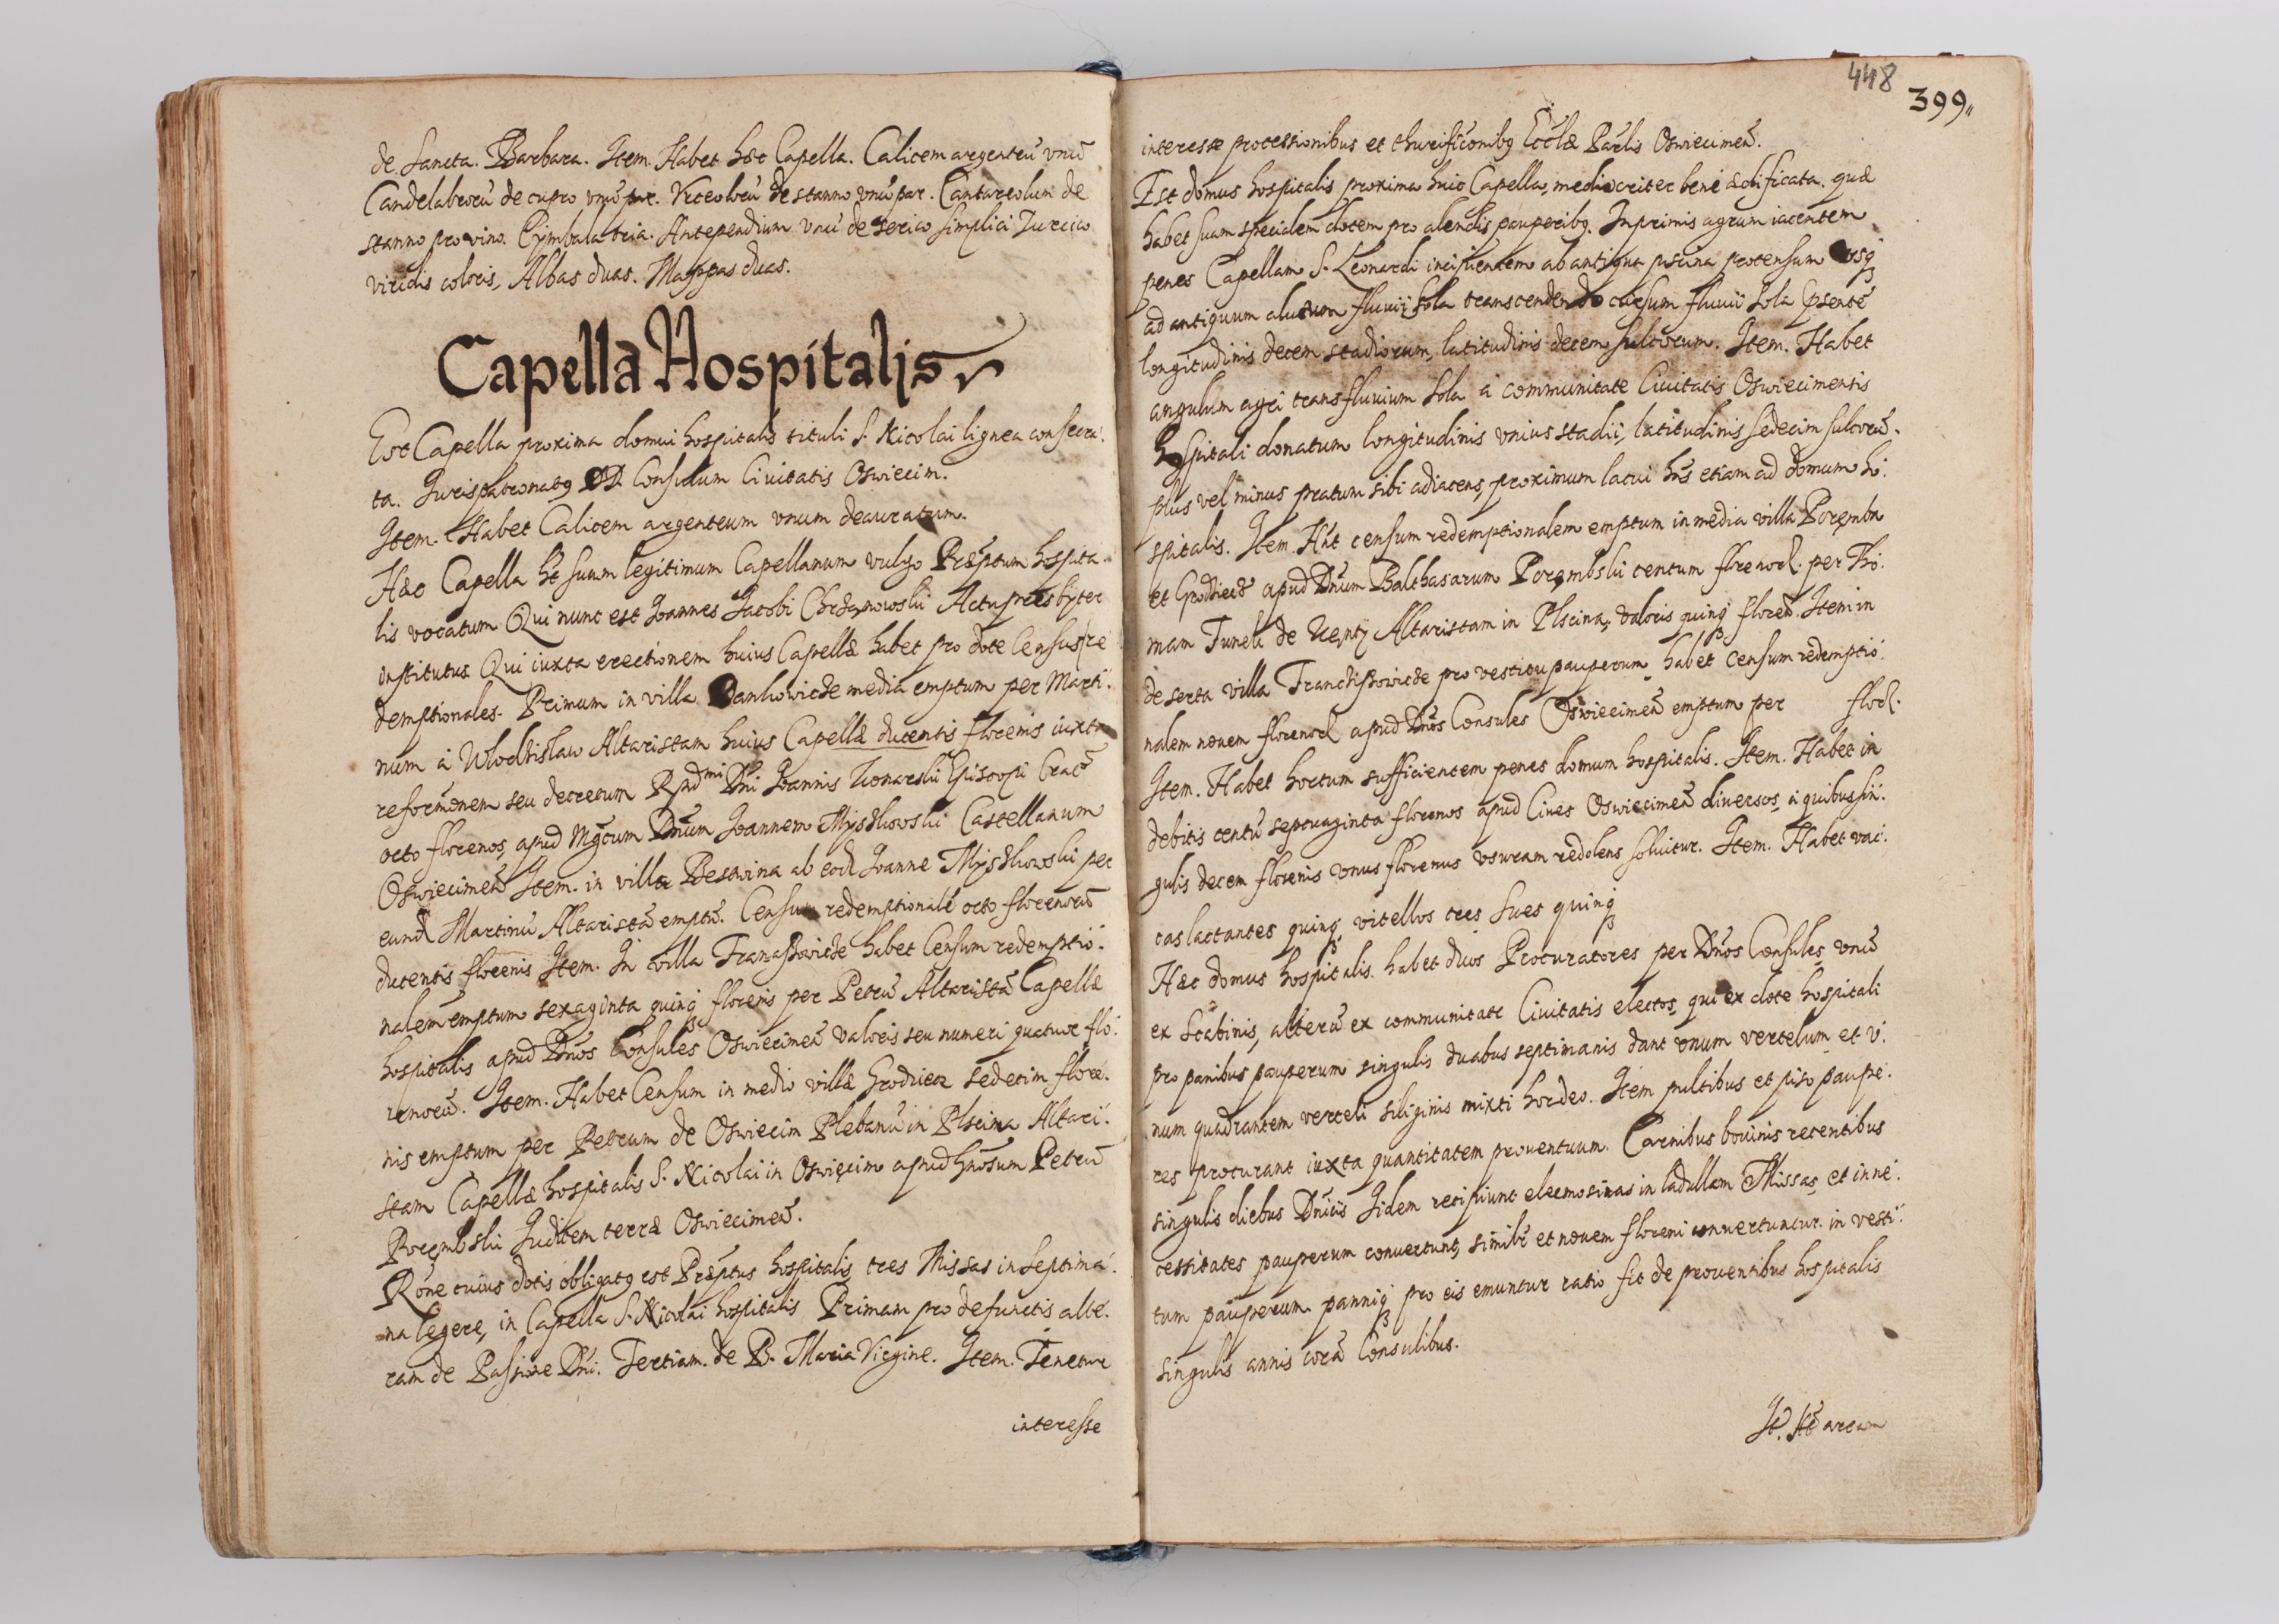 de Sancta. Barbara. Item. Habet haec Capella. Calicem argenteũ vnũ
Candelabrorũ de cupro vnũ par. Vrceolorũ de stanno vnũ par. Cantareolum de
stanno pro vino. Cymbala tria. Antependium vnũ de serico simplici Turcico
viridis coloris, Albas duas. Mappas duas.
Capella Hospitalis
Est Capella proxima domui hospitalis tituli S. Nicolai lignea consecra:
ta. Iurispatronatq DD Consulum Ciuitatis Oswiecim.
Item. Habet Calicem argenteum vnum deauratum.
Haec Capella ht suum legitimum Capellanum vulgo Præptum hospita:
lis vocatum Qui nunc est Joannes Jacobi Chrzanowski Actu presbyter
institutus Qui iuxta erectionem huius Capellæ habet pro dote Census re
demptionales. Primum in villa Dankowicze media emptum per Marti:
num à Wlodzislaw Altaristam huius Capellæ ducentis florenis iuxta
reformõnem seu decretum Rndmi Dni Joannis Konarski Episcopi Crac̃
octo florenos, apud Mgcum Dnum Joannem Myszkowski Castellanum
Oswiecimeñ Item. in villa Bestwina ab eod Joanne Myszkowski per
eund Martinũ Altaristã emptũ. Censum redemptionalẽ octo florenorũ
ducentis florenis Item. In villa Franciszowicze habet Censum redemptio:
nalem emptum sexaginta quinq florenis per Petrũ Altaristã Capellæ
hospitalis apud Dnos Consules Oswiecimeñ valoris seu numeri quatuor flo:
renorũ. Item. Habet Censum in medio villæ Grodziecz sedecim flore:
nis emptum per Petrum de Oswiecim Plebanũ in Plscina Altari:
stam Capellæ hospitalis S. Nicolai in Oswięcim apud Gnosum Petrũ
Porembski Judicem terræ Oswiecimeñ.
Rone cuius dotis obligatq est Præptus hospitalis tres Missas in septima:
na legere, in Capella S. Nicolai hospitalis Primam pro defunctis alte:
ram de Passione Dni. Tertiam. de B. Maria Virgine. Item. Tenetur
interesse
448
399
interesse processionibus et thurificõnibq Ecclæ Parlis Oswiecimeñ.
Est domus hospitalis proxima huic Capella, mediocriter bene ædificata. quæ
habet suam specialem dotem pro alendis pauperibq. Inprimis agrum iacentem
penes Capellam S. Leonardi incipientem ab antiqua piscina protensum vsq
ad antiquum alueum fluuij Sola transcendendo cursum fluuij Sola psentẽ
longitudinis decem stadiorum, latitudinis decem sulcorum. Item. Habet
angulum agri trans fluuium Sola à communitate Ciuitatis Oswiecimensis
hospitali donatum longitudinis vnius stadij, latitudinis sedecim sulcorũ.
plus vel minus pratum sibi adiacens, proximum lacui hns etiam ad domum ho:
spitalis. Item. Hnt censum redemptionalem emptum in media villa Poręmba
et Grodziecz apud Dnum Balthasarum Porembski centum florenor. per Tho:
mam Tuneli de Kęnty Altaristam in Plscina, valoris quinq floreñ. Item in
deserta villa Franciszowicze pro vestitu pauperum habet censum redemptio:
nalem nouem florenor apud Dnos Consules Oswiecimeñ emptum per flor.
Item. Habet hortum sufficientem penes domum hospitalis. Item. Habet in
debitis centũ septuaginta florenos apud Ciues Oswiecimeñ diuersos, à quibus sin:
gulis decem florenis vnus florenus vsuram redolens soluitur. Item. Habet vac:
cas lactantes quinq, vitellos tres sues quinq
Haec domus hospitalis. habet duos Procuratores per Dnos Consules, vnũ
ex Scabinis, alterũ ex communitate Ciuitatis electos, qui ex dote hospitali
pro panibus pauperum singulis duabus septimanis dant vnum vertelum et v:
num quadrantem verteli siliginis mixti hordeo. Item pultibus et piso paupe:
res procurant iuxta quantitatem prouentuum. Carnibus bouinis recentibus
singulis diebus Dnicis Iidem recipiunt eleemosinas in ladullam Missas, et in ne:
cessitates pauperum conuertunt, similr et nouem floreni conuertuntur in vesti:
tum pauperum. panniq pro eis emuntur ratio fit de prouentibus hospitalis
singulis annis corã Consulibus.
It. Ht aream